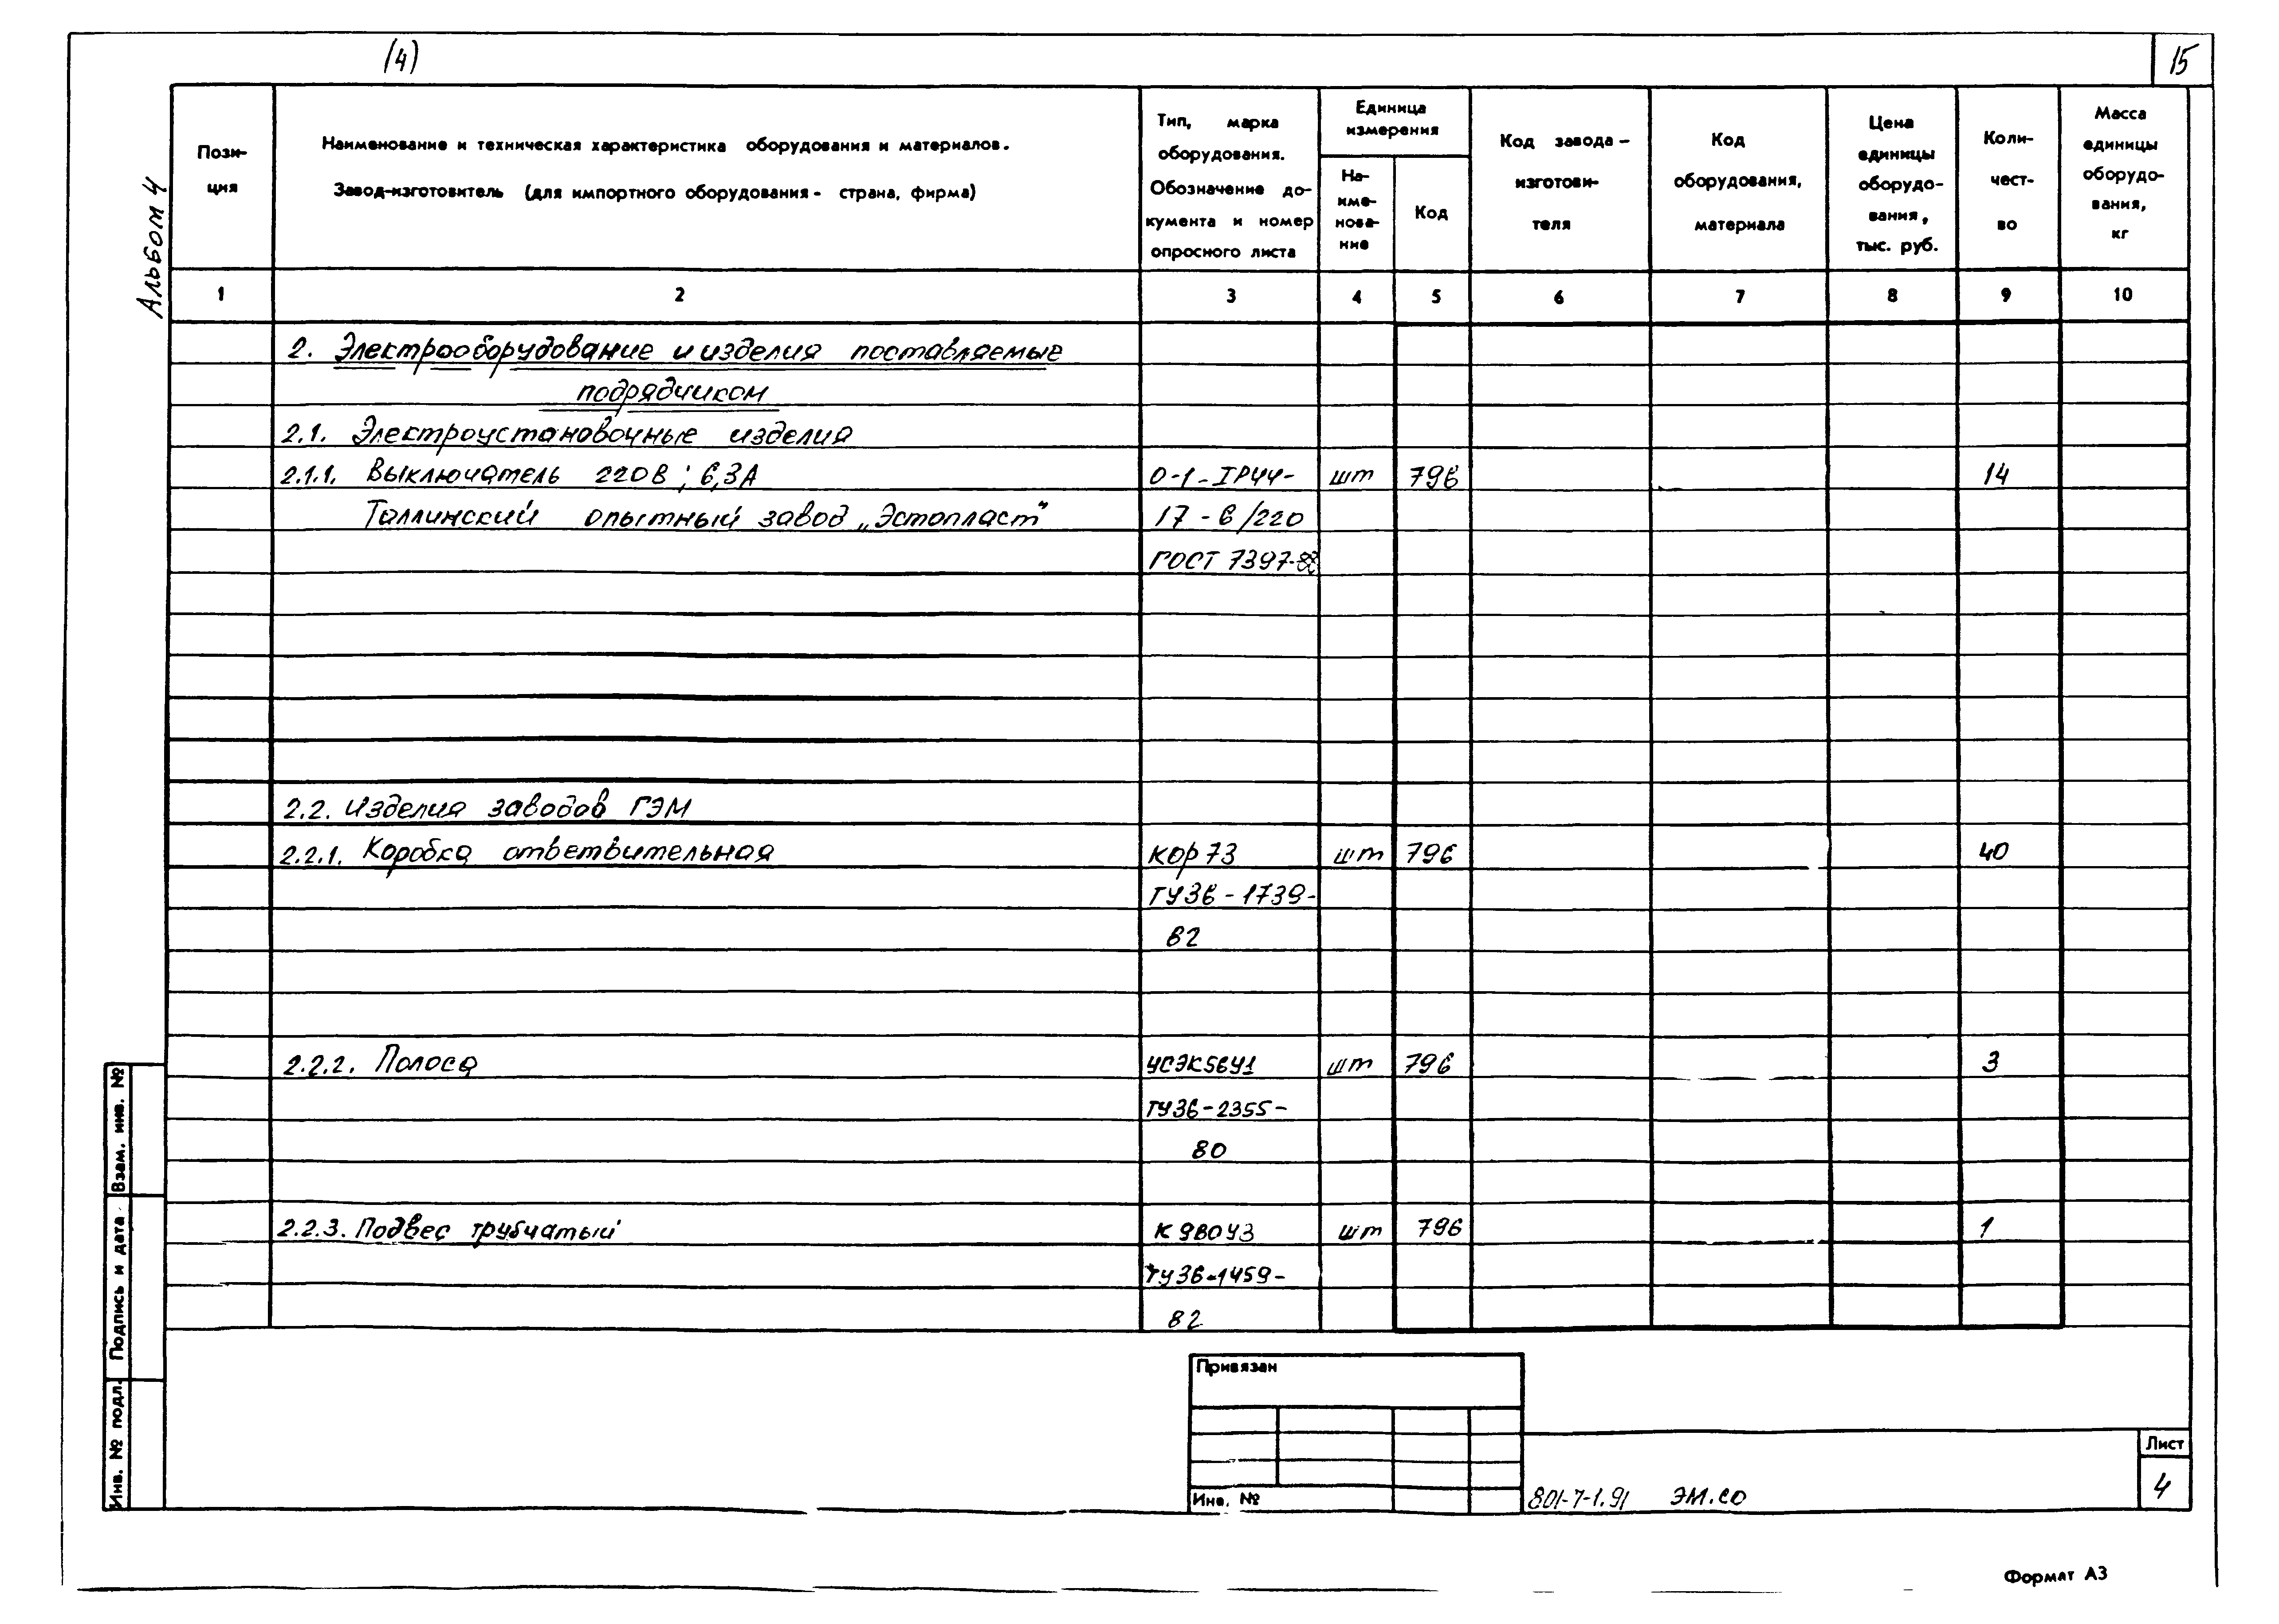 (4)
15
Альбом 4
Пози-
ция
Наименование и техническая характеристика оборудования и материалов.
Завод-изготовитель (для импортного оборудования - страна, фирма)
Тип, марка
оборудования.
Обозначение до-
кумента и номер
опросного листа
Единица
измерения
На-
име-
нова-
ние
Код
Код завода -
изготови-
теля
Код
оборудования,
материала
Цена
единицы
оборудо-
вания,
тыс. руб.
Коли-
чест-
во
Масса
единицы
оборудо-
вания,
кг
1 2 3 4 5 6 7 8 9 10
2. Электрооборудование и изделия поставляемые
подрядчиком
2.1. Электроустановочные изделия
2.1.1. Выключатель 220В; 6,3А 0-1-IP44- шт 796 14
Таллинский опытный завод „Эстопласт" 17-6/220
ГОСТ 7397-
2.2. Изделия заводов ГЭМ
2.2.1. Коробка ответвительная КОР73 шт 796 40
ТУ36-1739-
82
2.2.2. Полоса УСЭК56У1 шт 796 3
ТУ36-2355-
80
2.2.3. Подвес трубчатый К980У3 шт 796 1
ТУ36-1459-
82
Взам. инв. №
Подпись и дата
Инв. № подл.
Привязан
Инв. №
801-7-1.91 ЭМ.СО
Лист
4
Формат А3